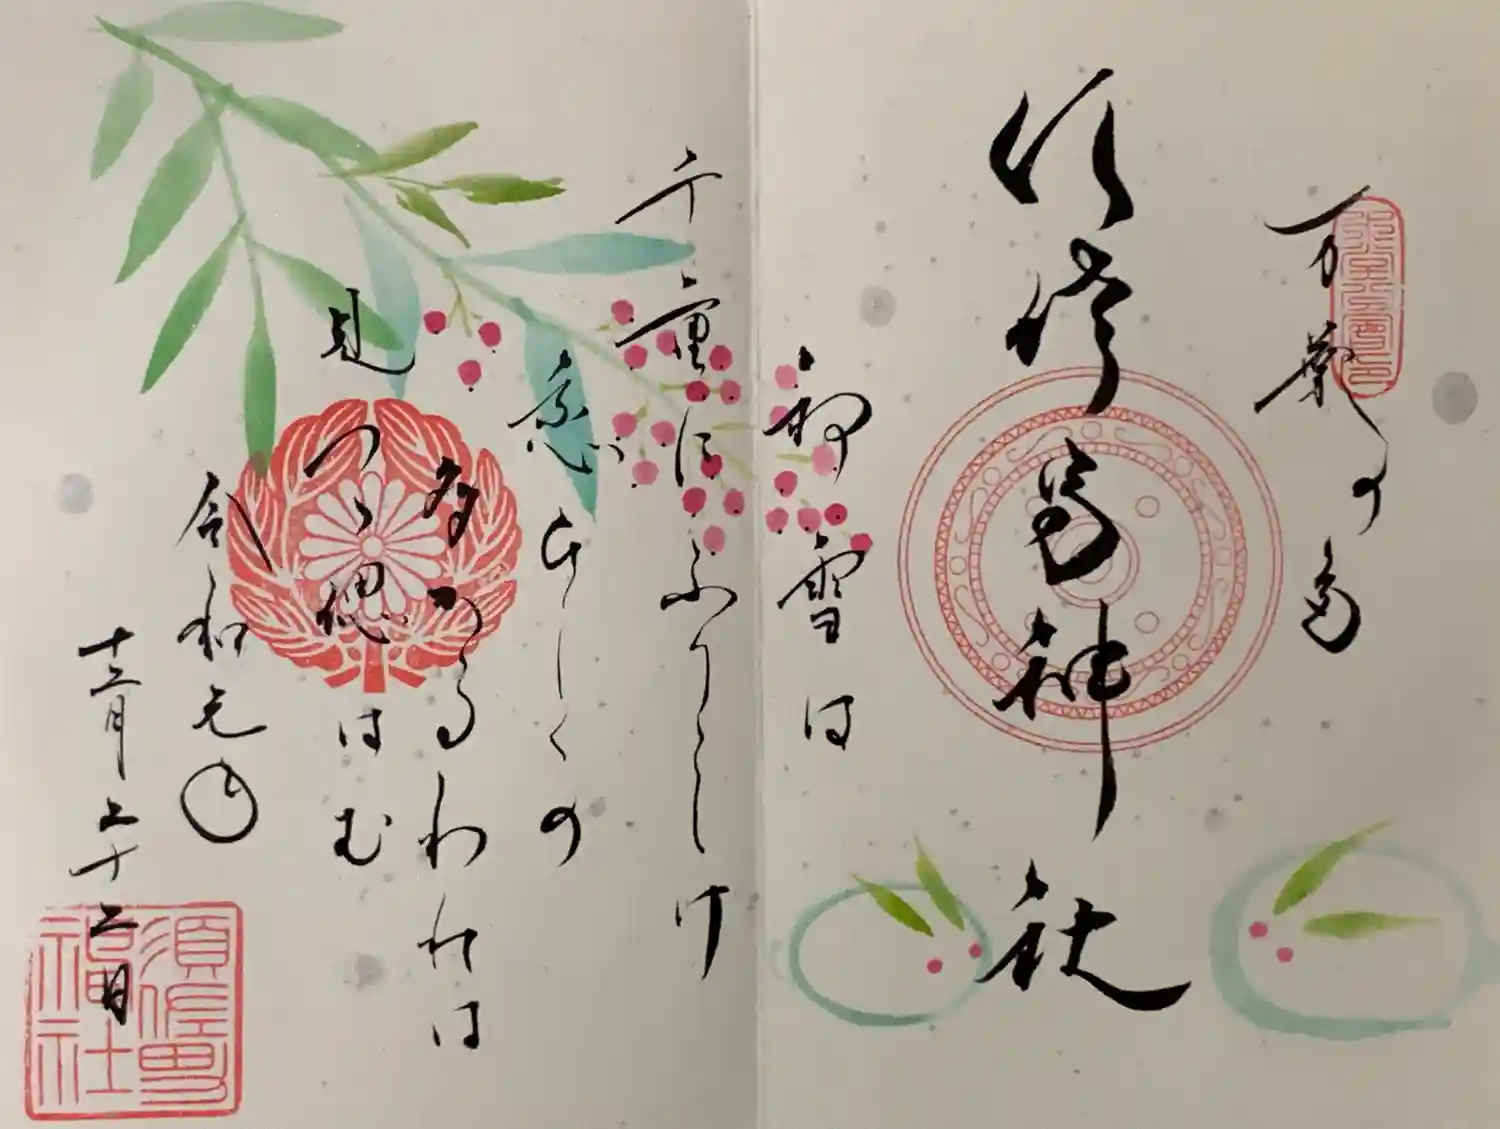 万葉の
須佐男神社
初雪は
千重にふりしけ
恋ひしくの
多かるわれは
見つゝ偲はむ
令和元年
十二月二十二日
須佐男